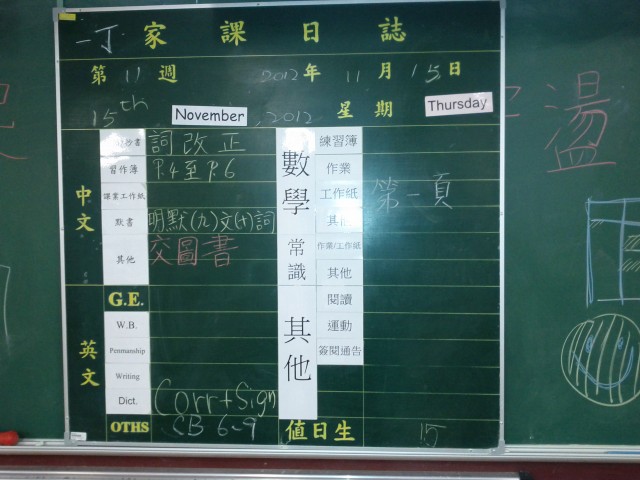 一丁 家課日誌
第 11 週 2012年 11月 15日
15th November, 2012 星期 Thursday
中文
抄書 詞改正
習作簿 P.4至P.6
課業工作紙
默書 明默(九)文(十)詞
其他 交圖書
英文
G.E.
W.B.
Penmanship
Writing
Dict. Corr+Sign
OTHS CB 6-9
數學
練習簿
作業
工作紙 第一頁
其他
常識
作業/工作紙
其他
其他
閱讀
運動
簽閱通告
值日生 15
湯